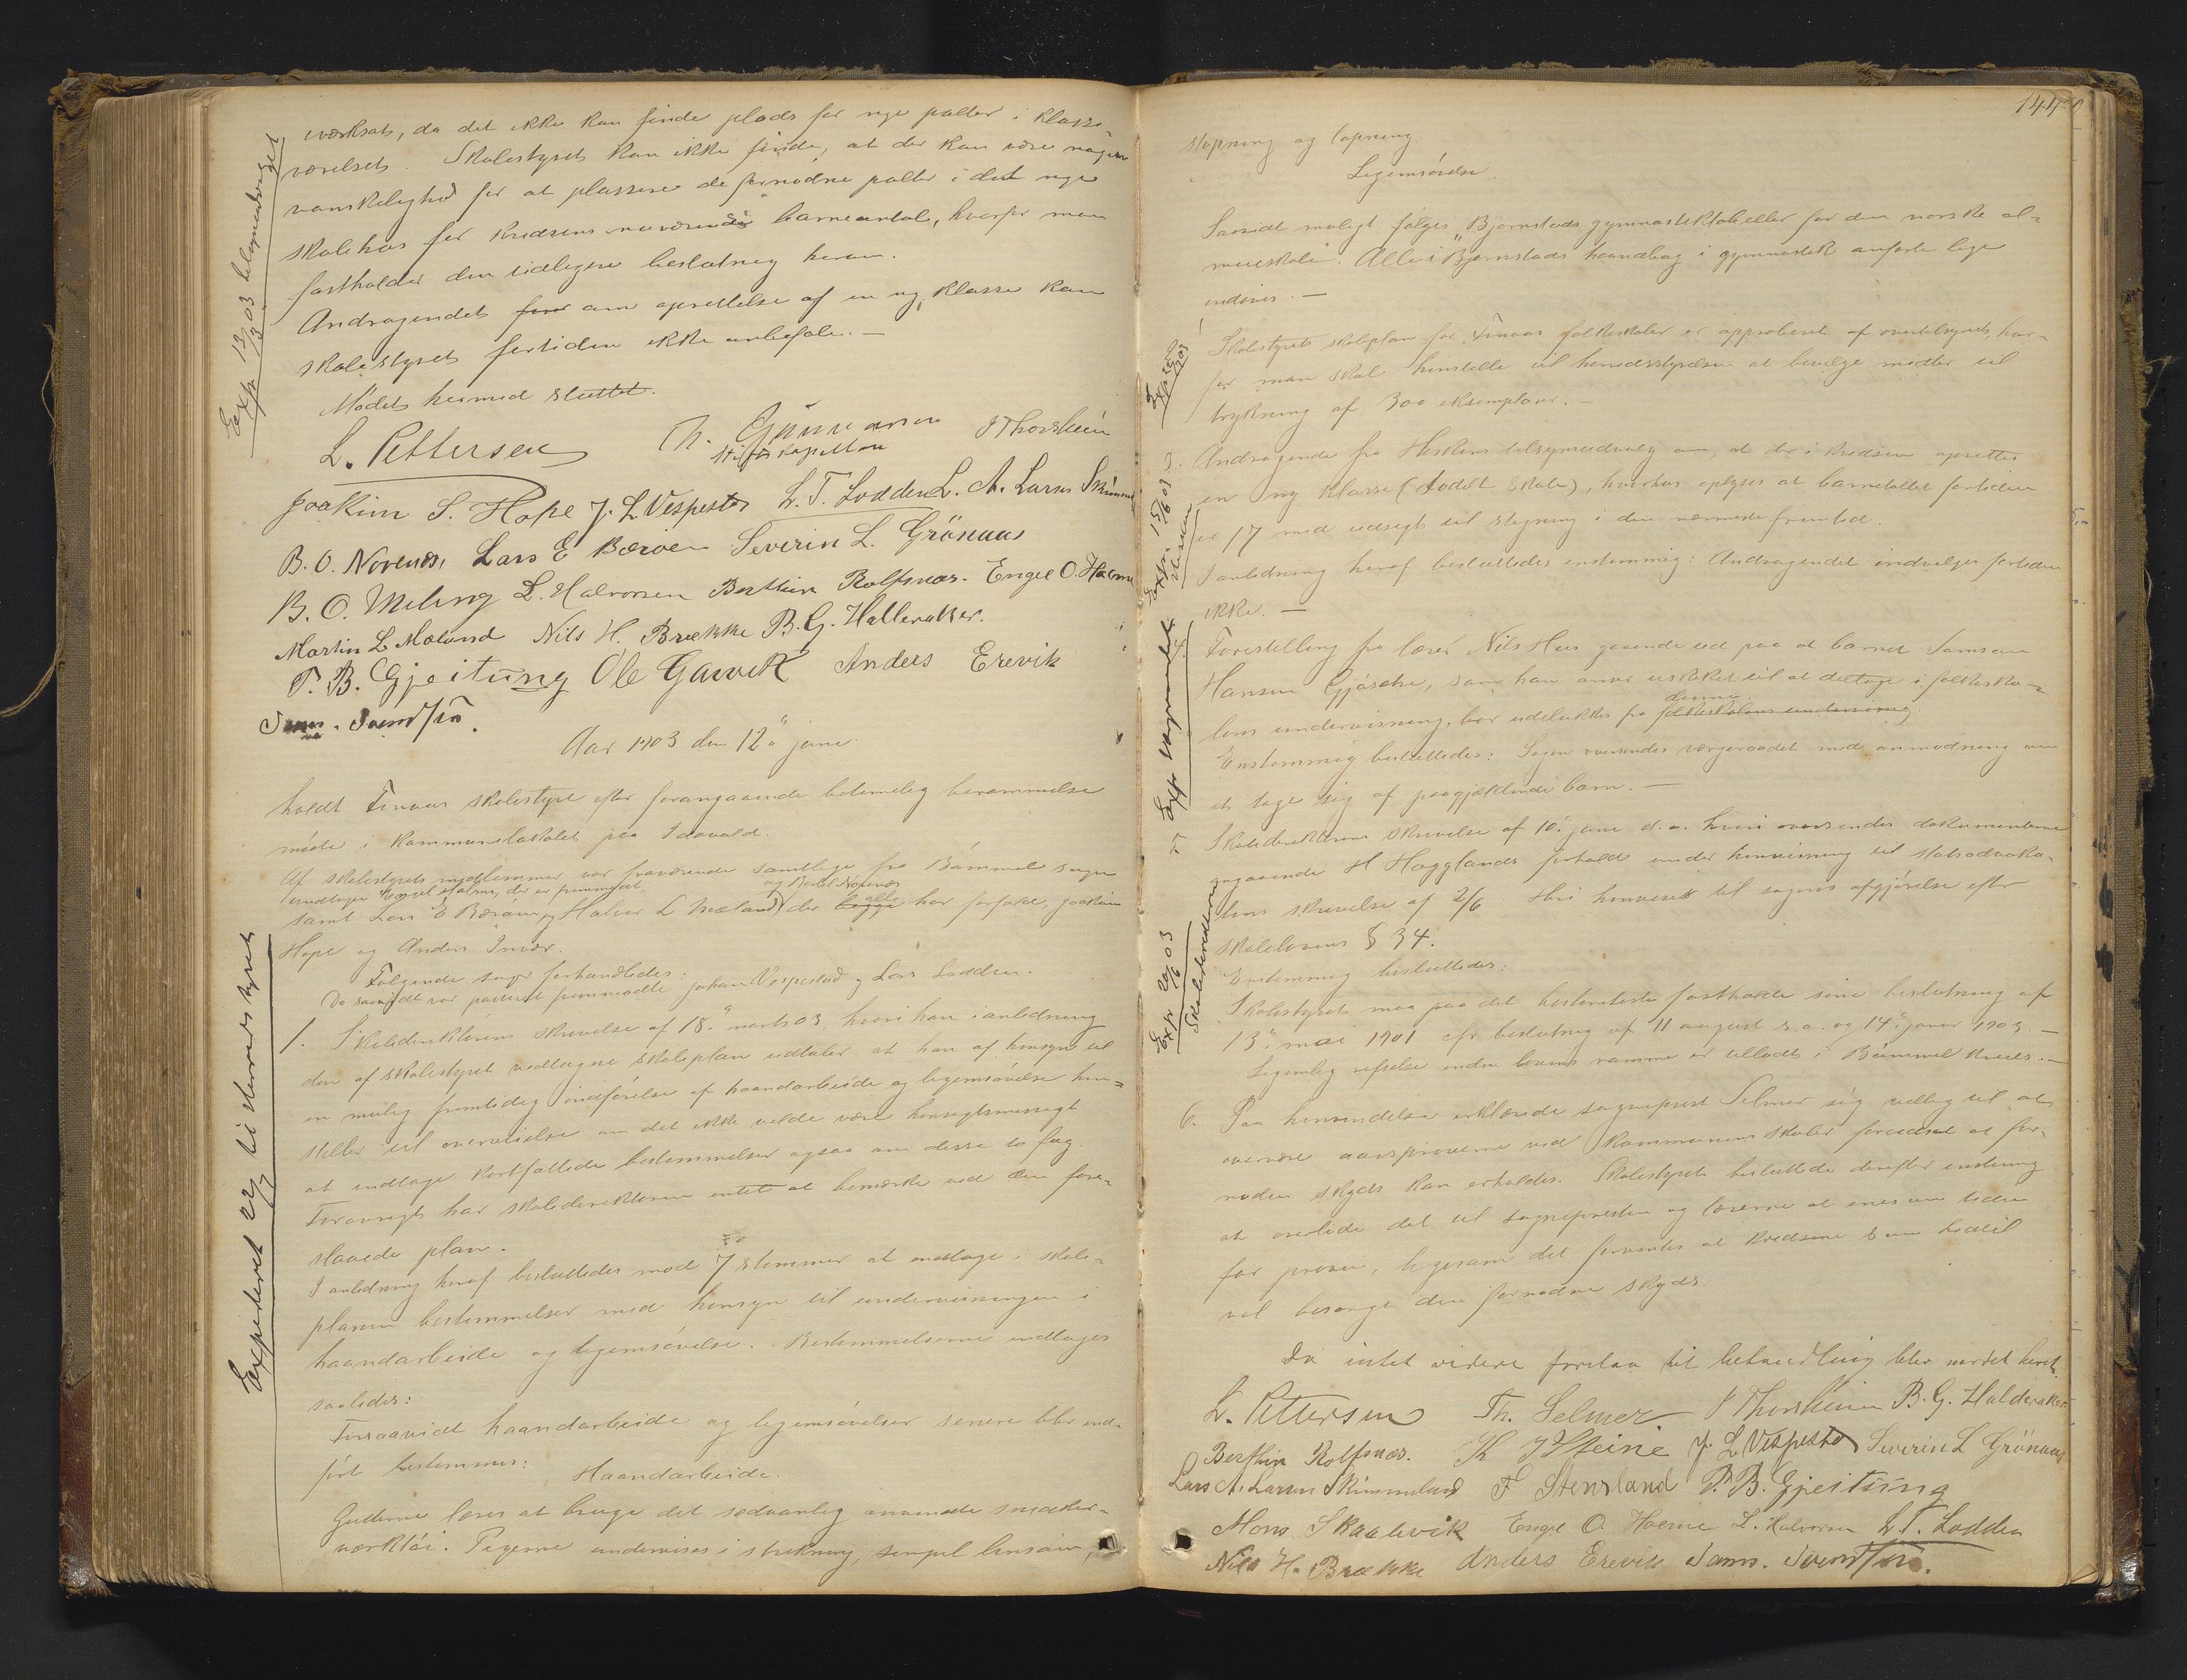 værksat, da det ikke kan finde plads for nye pulter i klasse-
værelset. Skolestyret kan ikke finde, at der kan være nogen
vanskelighed for at plassere de fornødne pulter i det nye
skolehus for kredsens nuværende barneantal, hvorfor man
fastholder den tidligere beslutning herom.
Andragendet om oprettelse af en ny klasse kan
skolestyret fortiden ikke anbefale. —
Mødet hermed sluttet.
Exp 13/3 03 tilsynsudvalget
L. Pettersen Th. Gunnarson J Thorsheim
stiftskapellan
Joakim S. Hope J. L. Vespestad L. T. Lodden L. A. Larsen Skimmel
B. O. Norenes, Lars E Bærøen Severin L. Grönnaas
B. O. Meling L. Halvorsen Berthin Rolfsnæs. Engel O. Holme
Martin L Mæland Nils H. Brække B. G. Halleraker.
T. B. Gjeitung Ole Gaevik Anders Erevik
Sam. Svendsen.
Aar 1903 den 12te juni
holdt Finaas skolestyre efter forangaaende betimelig berammelse
møde i kommunelokalet paa Idavold.
Af skolestyrets medlemmer var fraværende samtlige fra Bømmel sogn
undtagen Engel Holme, der er fremmødt, og Bertel Norenæs
samt Lars E Bærøen, Halvor L Mæland der begge alle har forfald, Joakim
Hope og Anders Innvær.
Følgende sager forhandledes:
Da saavidt var passeret fremmødte Johan Vespestad og Lars Lodden.
1. Skoledirektørens skrivelse af 18de marts 03, hvori han i anledning
den af skolestyret vedtagne skoleplan udtaler at han af hensyn til
en mulig fremtidig indførelse af haandarbeide og legemsøvelse hen-
stiller til overveielse om det ikke vilde være hensigtsmæssigt
at indtage kortfattede bestemmelser ogsaa om disse to fag.
Forøvrigt har skoledirektøren intet at bemærke ved den fore-
slaaede plan.
I anledning heraf besluttedes mod 7 stemmer at indtage i skole-
planen bestemmelser med hensyn til undervisningen i
haandarbeide og legemsøvelse. Bestemmelserne indtages
saaledes:
Forsaavidt haandarbeide og legemsøvelser senere blir ind-
ført bestemmes:
Haandarbeide.
Gutterne læres at bruge det sædvanlig anvendte snedker-
værktøi. Pigerne undervises i strikning, simpel linsøm,
Expederet 2/7 til herredsstyret
144
stopning og lapning.
Legemsøvelse.
Saavidt muligt følges "Bjørnstads gymnastiktabeller for den norske al-
mueskole". Alle i Bjørnstads haandbog i gymnastik anførte lege
indøves. —
Skolestyrets skoleplan for Finaas folkeskoler er approberet af overtilsynet, hvor-
for man skal henstille til herredsstyrelsen at bevilge midler til
trykning af 300 eksemplarer. —
3. Andragende fra Hiskens tilsynsudvalg om, at der i kredsen oprettes
en ny klasse (todelt skole), hvorhos oplyses at barnetallet fortiden
er 17 med udsigt til stigning i den nærmeste fremtid.
I anledning heraf besluttedes enstemmig: Andragendet indvilges fortiden
ikke. —
Expr. 15/6 03
4. Forestilling fra lærer Nils Hus gaaende ud paa at barnet Samson
Hansen Gjøsæter, som han anser uskikket til at deltage i folkesko-
lens undervisning, bør udelukkes fra folkeskolens undervisning denne.
Enstemmig besluttedes: Sagen oversendes værgeraadet med anmodning om
at tage sig af paagjældende barn. —
Exp værgeraadet
5 Skoledirektørens skrivelse af 10de juni d.a. hvori oversendes dokumenterne
angaaende H Hagglands forhold under henvisning til statsadvoka-
tens skrivelse af 2/6 Heri henvises til sagens afgjørelse efter
skolelovens § 34.
Enstemmig besluttedes:
Skolestyret maa paa det bestemteste fastholde sine beslutning af
13de mai 1901 cfr beslutning af 11 august s.a. og 14de januar 1903. —
Legemlig refselse inden lovens ramme er tilladt i Bømmel kreds. —
Expr 20/6 03
Skoledirektøren
6. Paa henvendelse erklærede sognepræst Selmer sig villig til at
overvære aarsprøverne ved kommunens skoler forudsat at for-
nøden skyds kan erholdes. Skolestyret besluttede derefter enstemmig
at overlade det til sognepresten og lærerne at enes om tiden
for prøven, ligesom det forventes at kredsene som hidtil
vil besørge den fornødne skyds.
Da intet videre forelaa til behandling blev mødet hævet.
L. Pettersen Th. Selmer J Thorsheim B. G. Halderaker
Berthin Rolfsnæs. K J Steine J. L Vespestad Severin L Grönnaas
Lars A. Larsen Skimmeland F Stensland T. B. Gjeitung
Mons Skaalevik Engel O. Holme L. Halvorsen L. T. Lodden
Nils H. Brække Anders Erevik Sam. Svendsen.